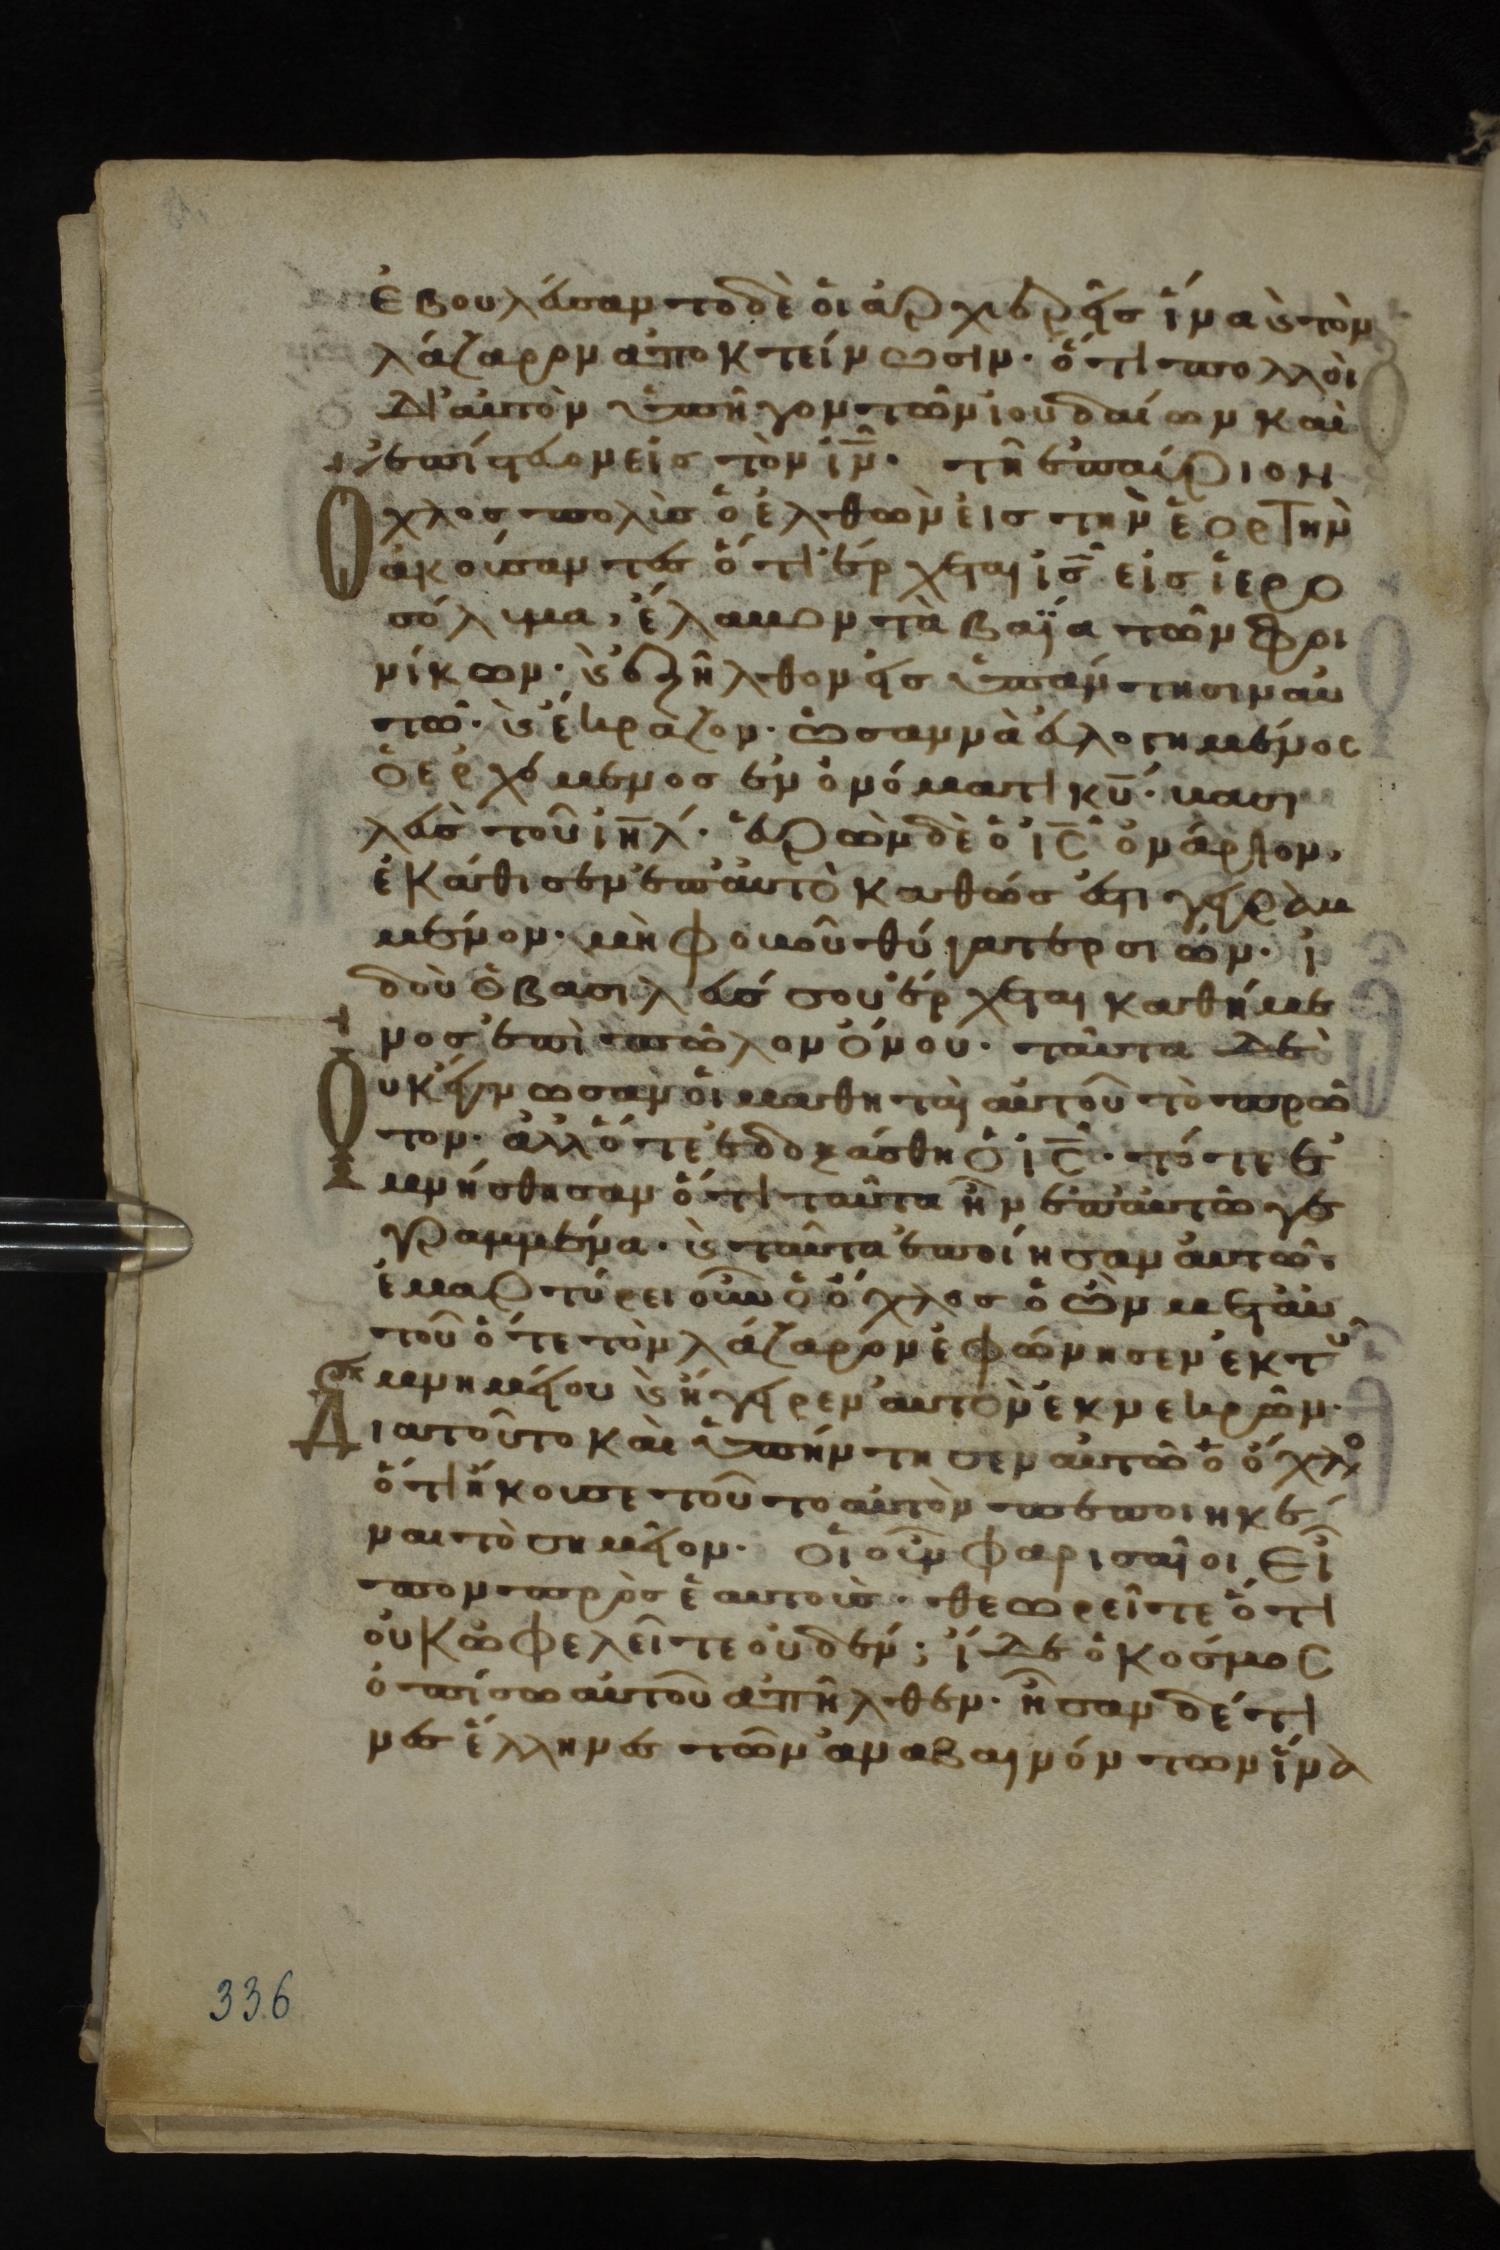 ἐβουλεύσαντο δὲ οἱ ἀρχιερεῖς ἵνα ϗ τὸν
λάζαρον ἀποκτείνωσιν· ὅτι πολλοὶ
δι' αὐτὸν ὑπῆγον τῶν ἰουδαίων καὶ
ἐπίστευον εἰς τὸν ιν̅· τῆ ἐπαύριον
Ὄχλος πολὺς ὁ ἐλθὼν εἰς τὴν ἑορτὴν
ἀκούσαντες ὅτι ἔρχεται ις̅ εἰς ἱερο
σόλυμα, ἔλαβον τὰ βαΐα τῶν φοι
νίκων· ϗ ἐξῆλθον εἰς ὑπάντησιν αὐ
τῶ· ϗ ἔκραζον· ὡσαννὰ εὐλογημένος
ὁ ἐρχόμενος ἐν ὀνόματι κυ̅· βασι
λεὺς τοῦ ιηλ̅· εὑρὼν δὲ ὁ ις̅ ὀνάριον,
ἐκάθισεν ἐπ' αὐτὸ καθώς ἐστι γεγραμ
μένον· μὴ φοβοῦ θύγατερ σιών· ἰ
δοὺ ὁ βασιλεύς σου ἔρχεται καθήμε
νος ἐπὶ πῶλον ὄνου· ταῦτα δὲ
Οὐκ ἔγνωσαν οἱ μαθηταὶ αὐτοῦ τὸ πρῶ
τον· ἀλλ' ὅτε ἐδοξάσθη ὁ ις̅· τότε ἐ
μνήσθησαν ὅτι ταῦτα ἦν ἐπ' αὐτῶ γε
γραμμένα· ϗ ταῦτα ἐποίησαν αὐτῶ·
ἐμαρτύρει οὖν ὁ ὄχλος ὁ ὢν μετ' αὐ
τοῦ ὅτε τὸν λάζαρον ἐφώνησεν ἐκ τοῦ
μνημείου ϗ ἤγειρεν αὐτὸν ἐκ νεκρῶν·
Διατοῦτο καὶ ὑπήντησεν αὐτῶ ὁ ὄχλο
ὅτι ἤκουσε τοῦτο αὐτὸν πεποιηκέ
ναι τὸ σημεῖον· οἱ οὖν φαρισαῖοι εἶ
πον πρὸς ἑαυτούς· θεωρεῖτε ὅτι
οὐκ ὠφελεῖτε οὐδέν; ἴδε ὁ κόσμος
ὀπίσω αὐτοῦ ἀπῆλθεν· ἦσαν δέ τι
νες ἕλληνες τῶν ἀναβαινόντων ἵνα
336